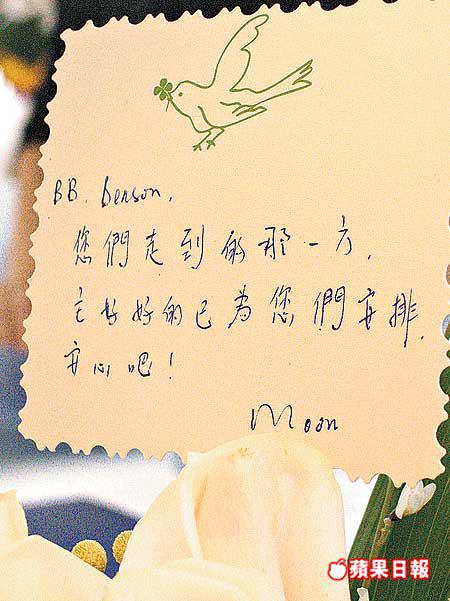 BB. Benson,
您們走到的那一方,
主好好的已為您們安排,
安心吧!
Moon
蘋果日報